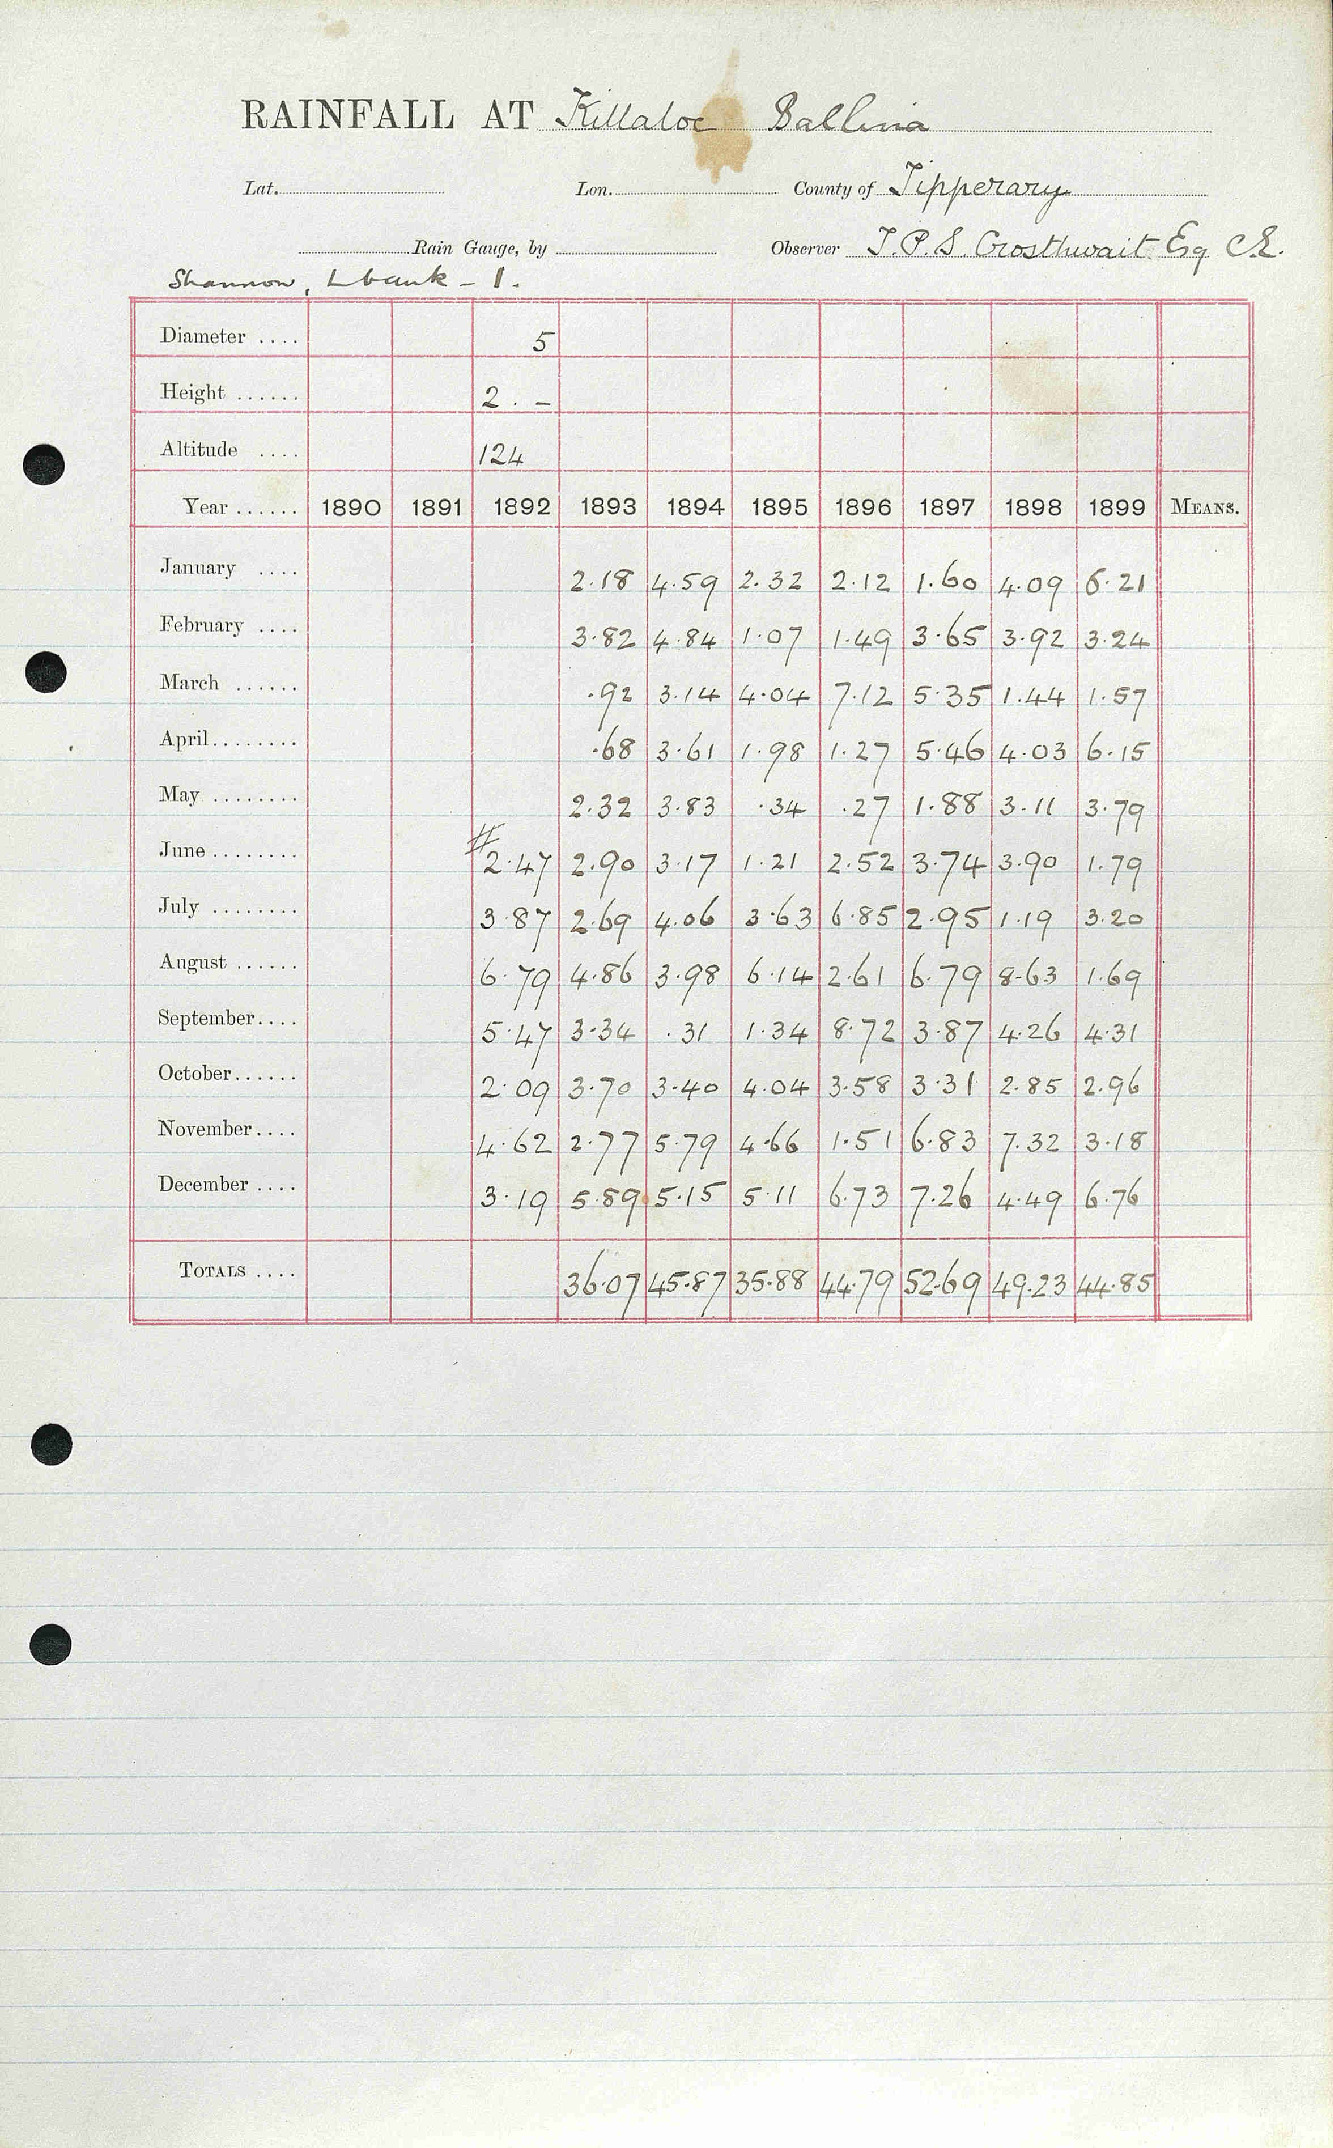 RAINFALL AT Killaloe Ballina
Lat. Lon. County of Tipperary
Rain Gauge, by Observer T.P.S. Crosthwait Esq C.E.
Shannon, L bank - 1.
Diameter .... 5
Height ...... 2 . -
Altitude .... 124
Year ...... 1890 1891 1892 1893 1894 1895 1896 1897 1898 1899 MEANS.
January .... 2.18 4.59 2.32 2.12 1.60 4.09 6.21
February .... 3.82 4.84 1.07 1.49 3.65 3.92 3.24
March ...... .92 3.14 4.04 7.12 5.35 1.44 1.57
April........ .68 3.61 1.98 1.27 5.46 4.03 6.15
May ........ 2.32 3.83 .34 .27 1.88 3.11 3.79
June ........ # 2.47 2.90 3.17 1.21 2.52 3.74 3.90 1.79
July ........ 3.87 2.69 4.06 3.63 6.85 2.95 1.19 3.20
August ...... 6.79 4.86 3.98 6.14 2.61 6.79 8.63 1.69
September.... 5.47 3.34 .31 1.34 8.72 3.87 4.26 4.31
October...... 2.09 3.70 3.40 4.04 3.58 3.31 2.85 2.96
November.... 4.62 2.77 5.79 4.66 1.51 6.83 7.32 3.18
December .... 3.19 5.89 5.15 5.11 6.73 7.26 4.49 6.76
TOTALS .... 36.07 45.87 35.88 44.79 52.69 49.23 44.85